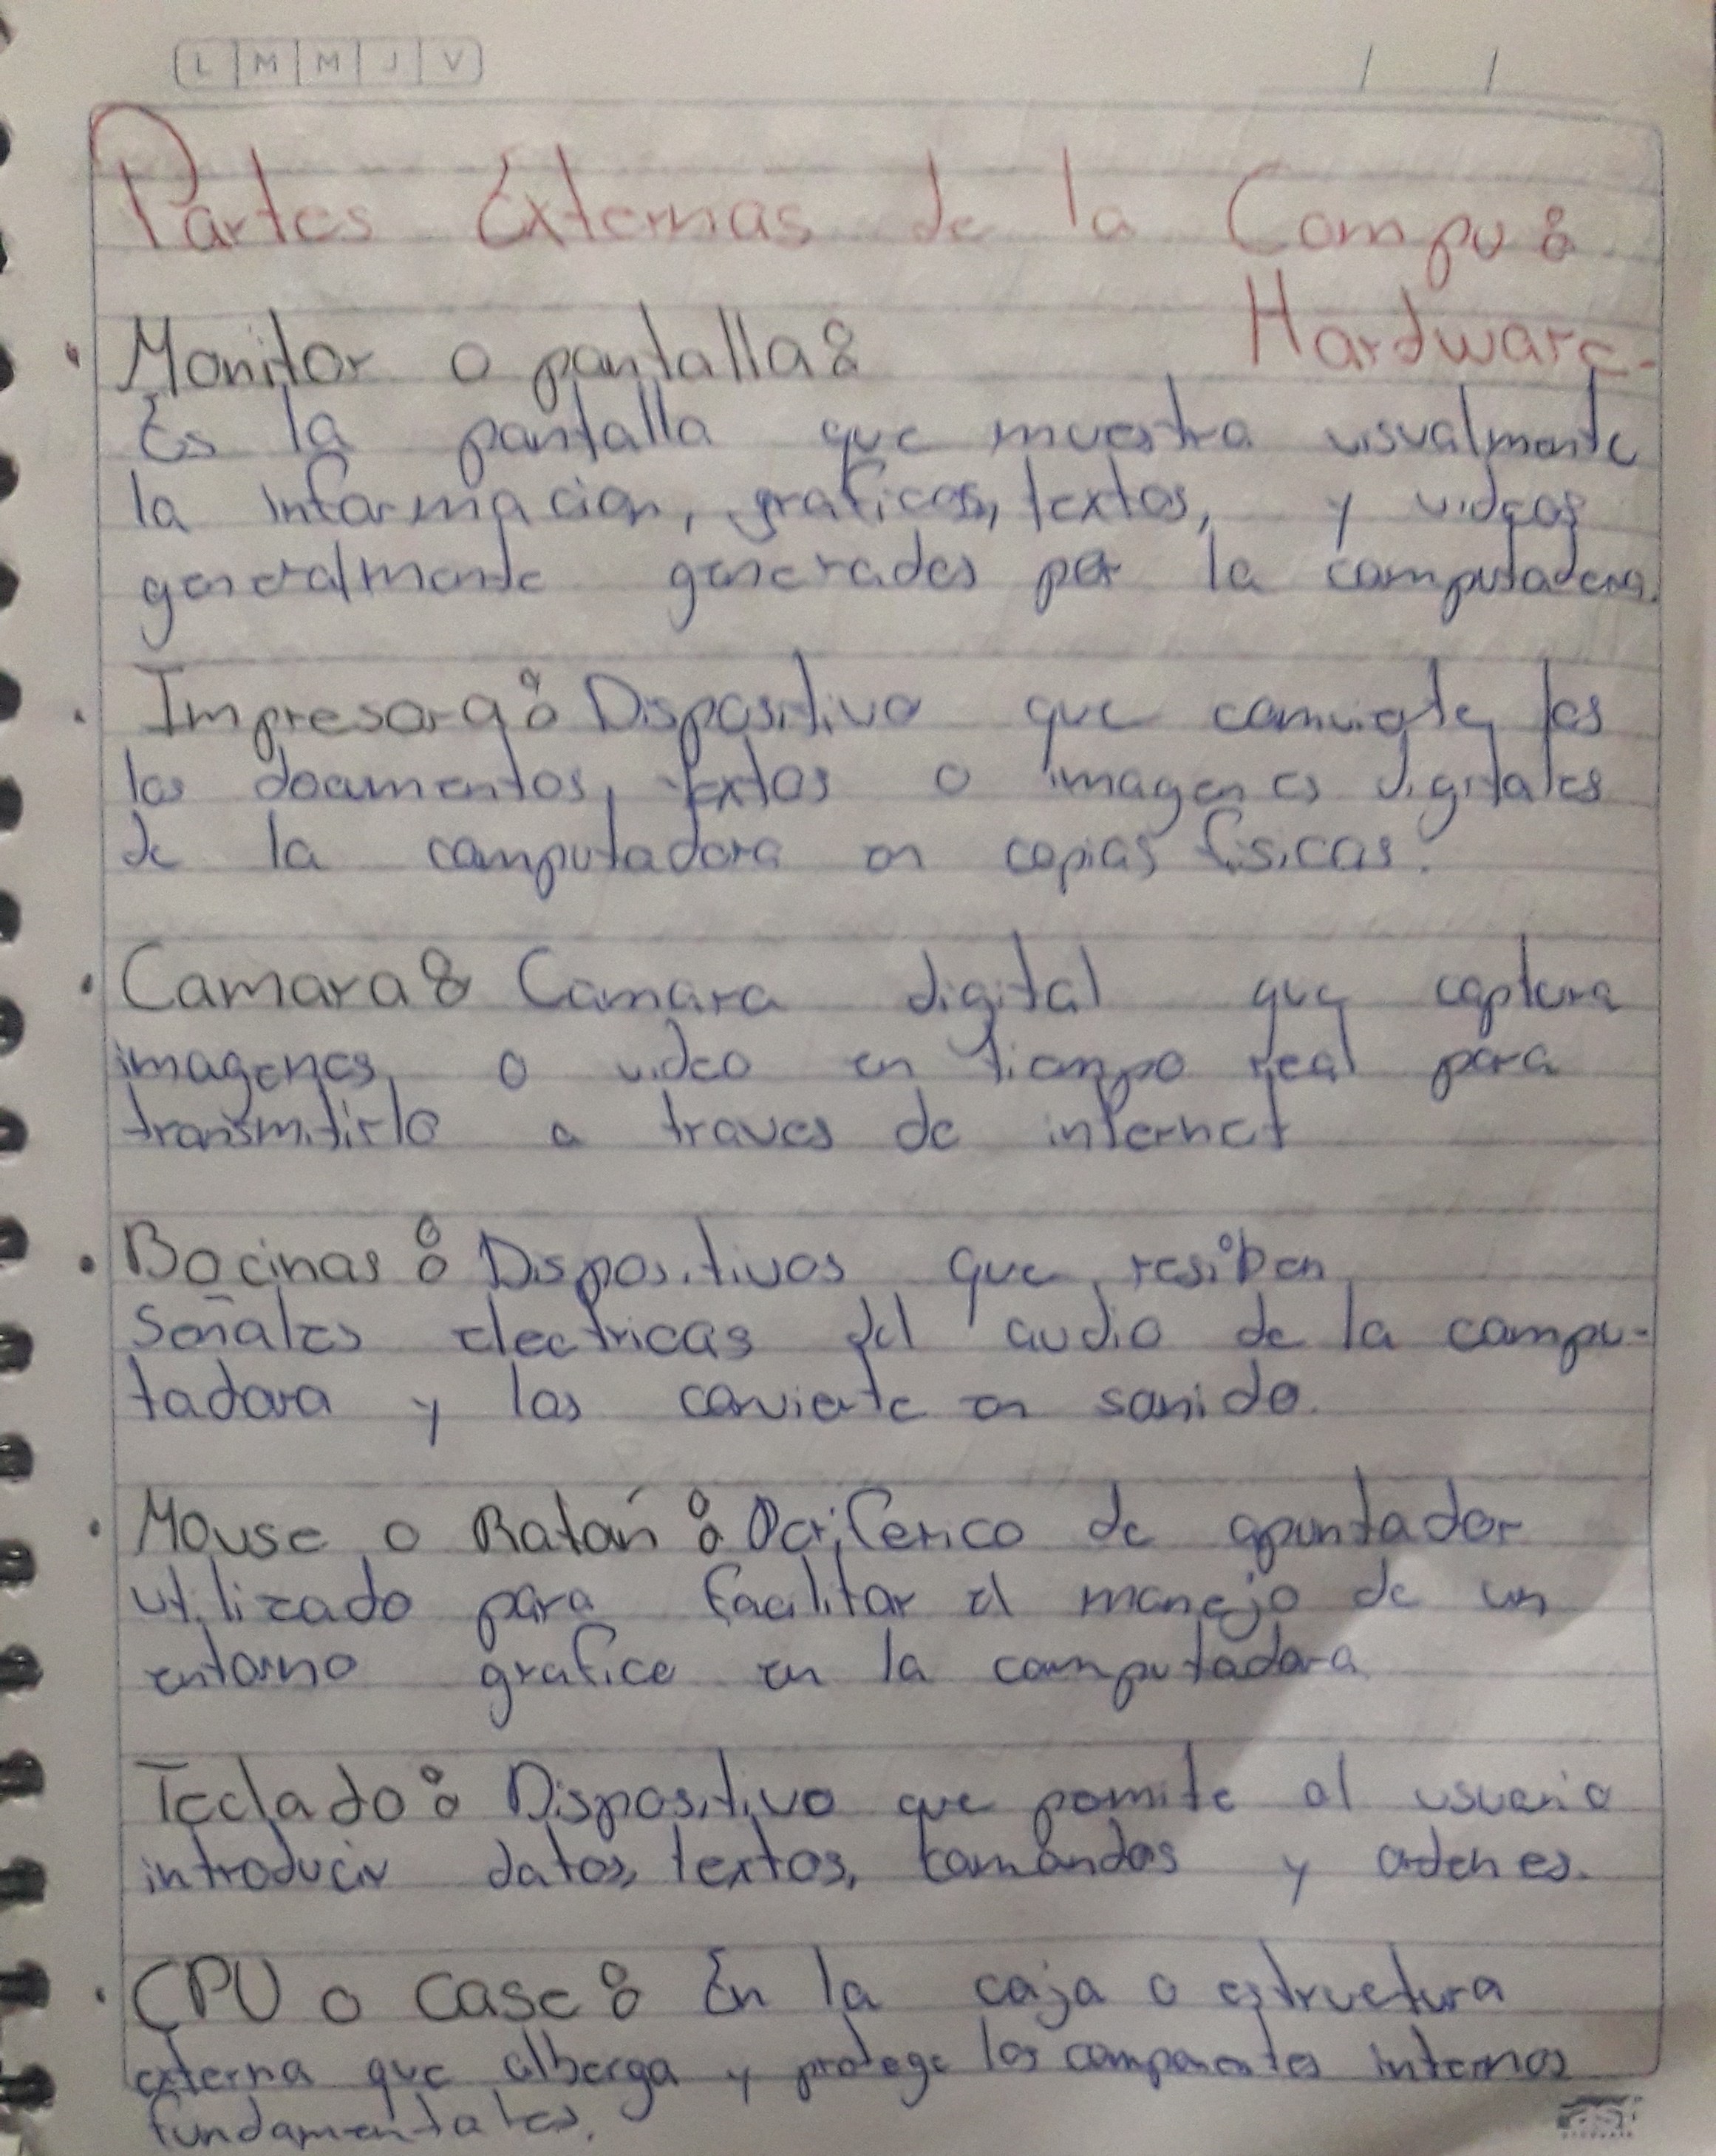 L M M J V
Partes Externas de la Compu:
Hardware.
• Monitor o pantalla:
Es la pantalla que muestra visualmente
la informacion, graficos, textos, y videos
generalmente generados por la computadora.
• Impresora: Dispositivo que convierte los
los documentos, textos o imagenes digitales
de la computadora en copias fisicas.
• Camara: Camara digital que captura
imagenes o video en tiempo real para
transmitirlo a traves de internet
• Bocinas: Dispositivos que resiben
señales electricas del audio de la compu-
tadora y las convierte en sonido.
• Mouse o Ratón: Periferico de apuntador
utilizado para facilitar el manejo de un
entorno grafico en la computadora
Teclado: Dispositivo que permite al usuario
introducir datos, textos, comandos y ordenes.
• CPU o case: En la caja o estructura
externa que alberga y protege los componentes internos
fundamentales.